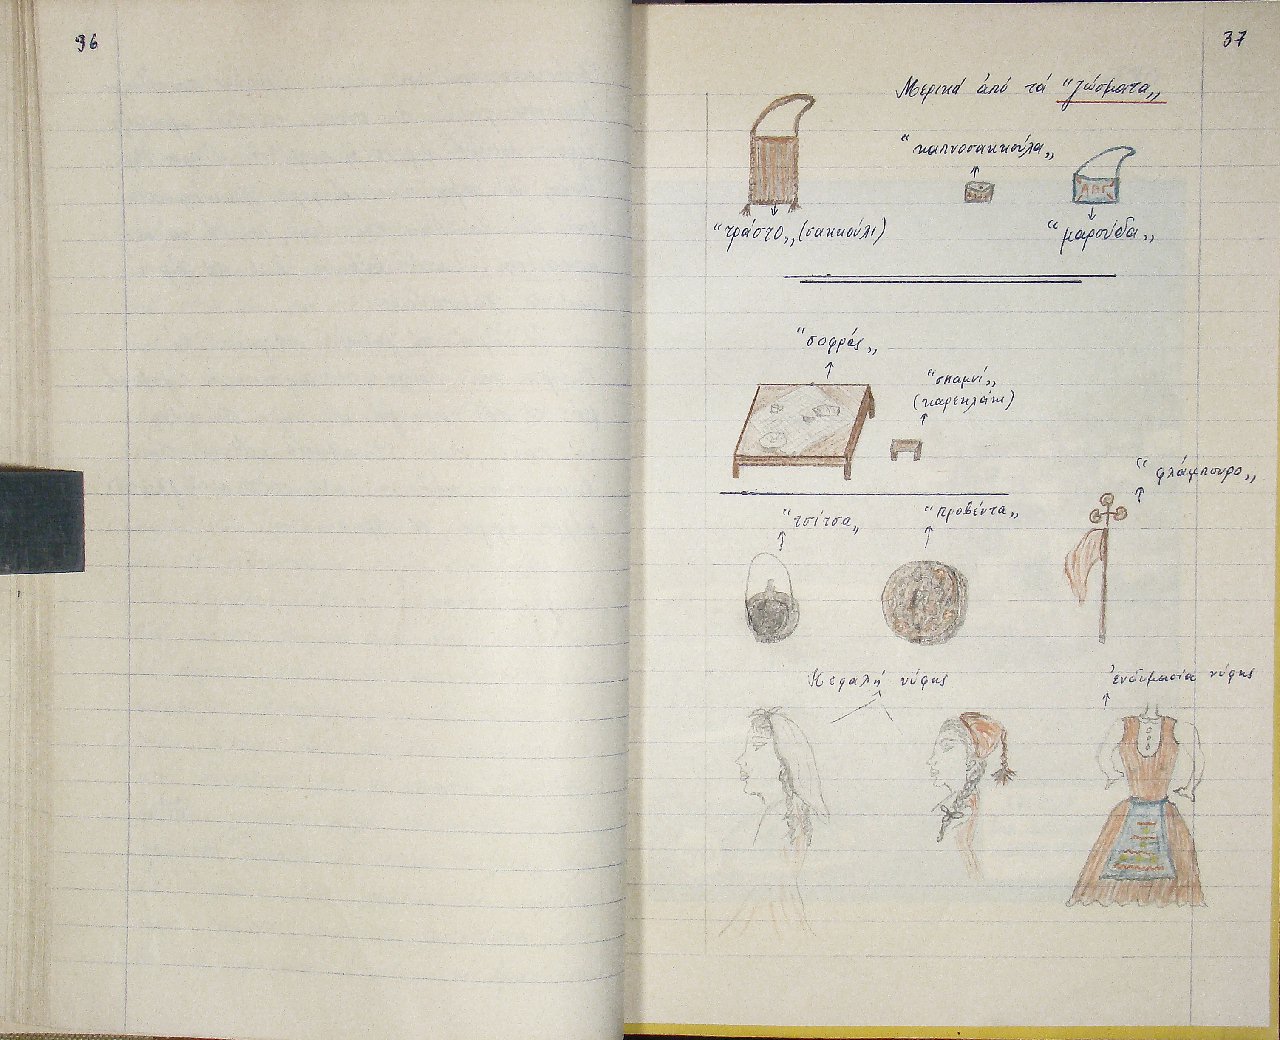 96
37
Μερικά ἀπό τά “γνώσματα„
“καπνοσακκούλα„
ΑΒΓ
“τράστο„ (σακκούλι)
“μαρούδα„
“σοφράς„
“σκαμνί„
(καρεκλάκι)
“φλάμπουρο„
“τσίτσα„
“προβέντα„
Κεφαλή νύφης
ἐνδυμασία νύφης